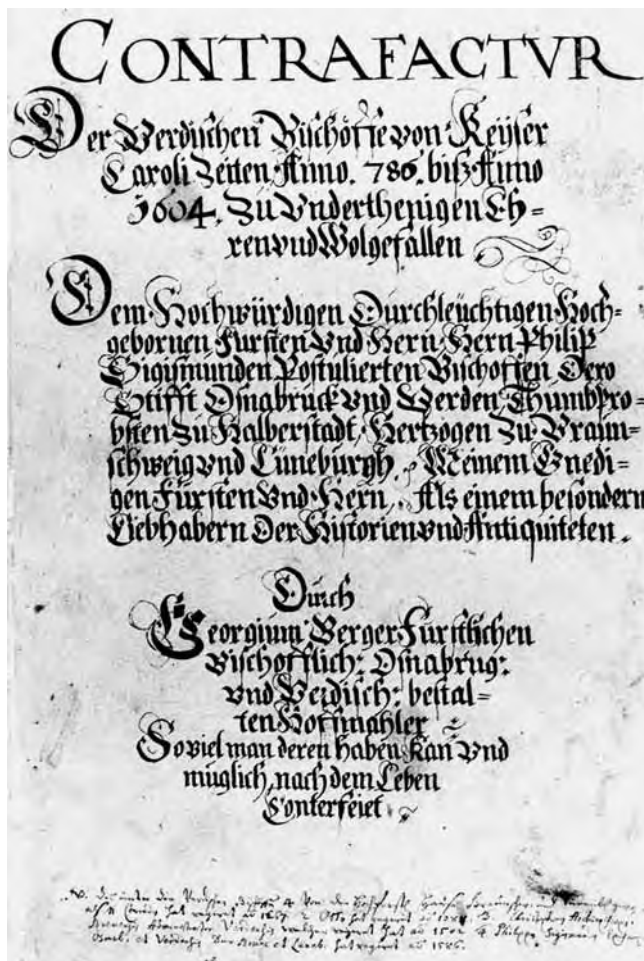 CONTRAFACTVR
Der Verdischen Bischöffe von Keyser
Caroli Zeiten Anno. 786. biß Anno
1604. Zu Vnderthenigen Eh=
ren vnd Wolgefallen
Dem Hochwürdigen Durchleuchtigen Hoch=
gebornen Fursten Vnd Hern Hern Philip
Sigismunden Postulierten Bischoffen Dero
Stifft Osnabruck vnd Verden Thumbpro=
bsten Zu Halberstadt, Hertzogen Zu Braun=
schweig vnd Lüneburgh, Meinem Gnedi=
gen Fürsten Vnd Hern, Als einem besondern
Liebhabern Der Historien vnd Antiquiteten.
Durch
Georgium Berger Fürstlichen
Bischofflich: Osnabrug:
vnd Verdisch: bestal=
ten Hoffmahler
So viel man deren haben Kan Vnd
müglich, nach dem Leben
Conterfeiet